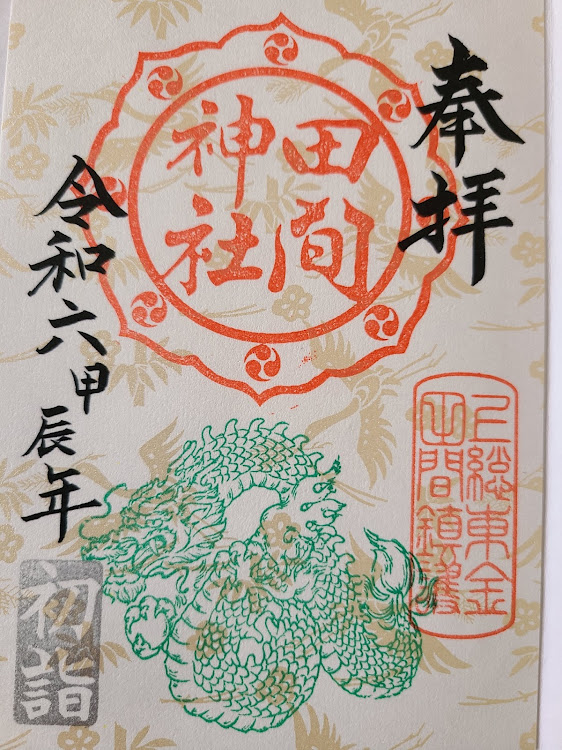 奉拝
田間
神社
上総東金
田間鎮護
令和六甲辰年
初詣